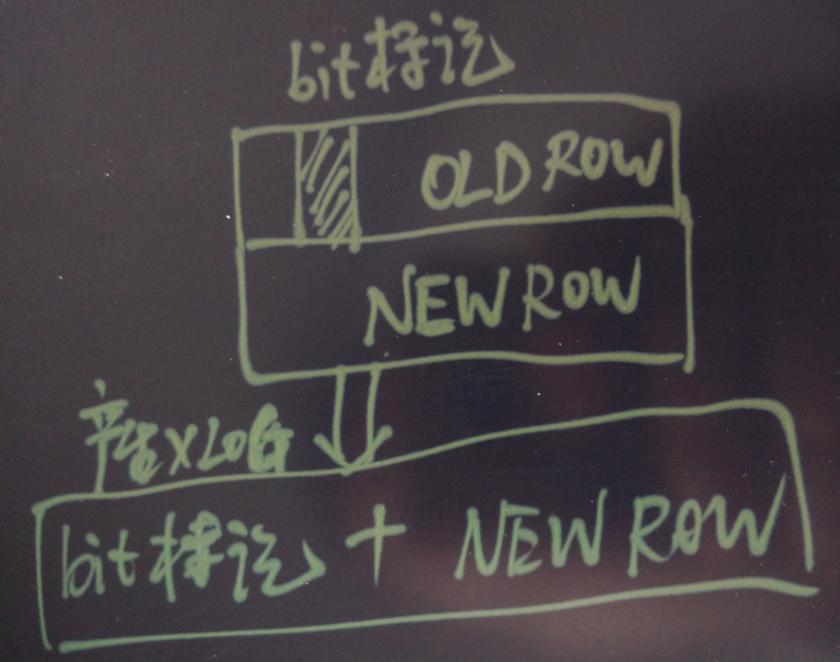 bit标记
OLD ROW
NEW ROW
产生XLOG
bit标记 + NEW ROW